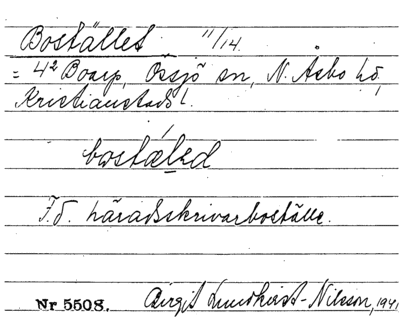 Bostället 11/14.
= 4² Boarp, Össjö sn, N. Åsbo hd,
Kristianstads l.
bostælled
F.d. häradsskrivarboställe.
Nr 5508. Birgit Lundkvist-Nilsson, 1941